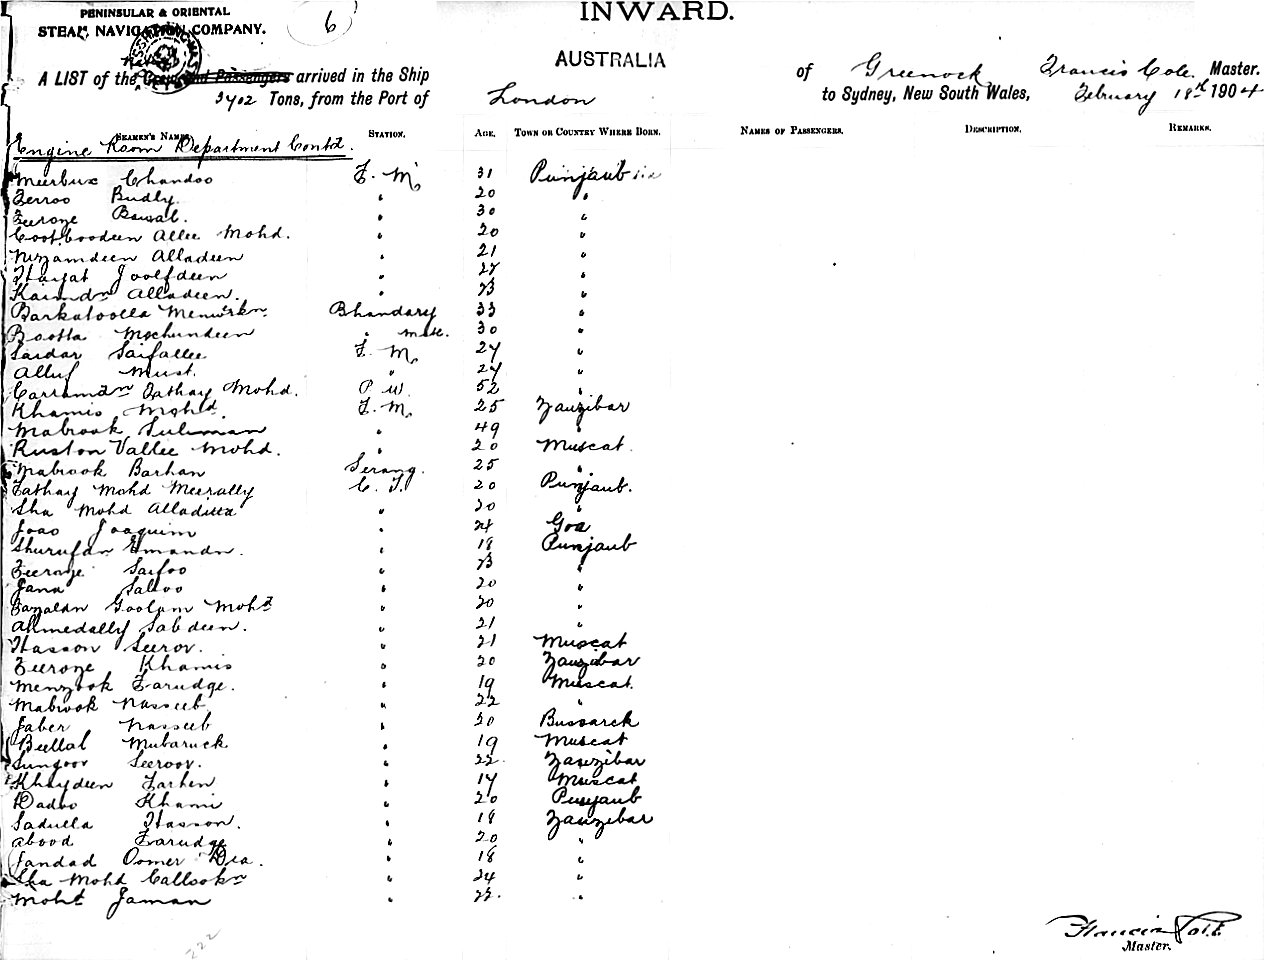 PENINSULAR & ORIENTAL
STEAM NAVIGATION COMPANY.
6
INWARD.
A LIST of the Native Crew and Passengers arrived in the Ship AUSTRALIA of Greenock Francis Cole Master.
3402 Tons, from the Port of London to Sydney, New South Wales, February 18th 1904
SEAMEN'S NAMES. STATION. AGE. TOWN OR COUNTRY WHERE BORN. NAMES OF PASSENGERS. DESCRIPTION. REMARKS.
Engine Room Department Contd.
Meerbux Chandoo F. M. 31 Punjaub
Ferroo Budly. " 20 "
Feeroze " 30 "
Cootboodeen Allee Mohd. " 20 "
Nizamdeen Alladeen " 21 "
Hayat Joolfdeen " 27 "
Kaimdn Alladeen. " 23 "
Barkatoolla Bhandary 33 "
Bootta " mate. 30 "
Sardar Saifallee F. M. 24 "
Alluf Must. " 24 "
Carramdn Fathay Mohd. P. W. 52 "
Khamis Mohd. F. M. 25 Zanzibar
Mabrook Suliman " 49 "
Ruston Vallee Mohd. " 20 Muscat.
Mabrook Barhan Serang. 25 "
Fathay Mohd Meerally C. T. 20 Punjaub.
Sha Mohd Alladitta " 20 "
Joao Joaquim " 24 Goa
Shurufdn Emamdn. " 18 Punjaub
Feeroze Saifoo " 23 "
Jana Saboo " 20 "
Fazaldn Goolam Mohd " 20 "
Ahmedally Sabdeen. " 21 "
Hasson Seerov. " 21 Muscat
Feeroze Khamis " 20 Zanzibar
Menzook Farudge. " 19 Muscat.
Mabrook Nasseeb " 22 "
Jaber Nasseeb " 20 Bussarek
Beellal Mubaruck " 19 Muscat
Sungoor Seeroor. " 22. Zanzibar
Khaydeen Farhen " 17 Muscat
Dadoo Khami " 20 Punjaub
Sadulla Hasson. " 18 Zanzibar
Abood Farudge " 20 "
Jandad Oomer Dia. " 18 "
Sha Mohd Callookn " 24 "
Mohd Jaman " 22. "
222
Francis Cole
Master.